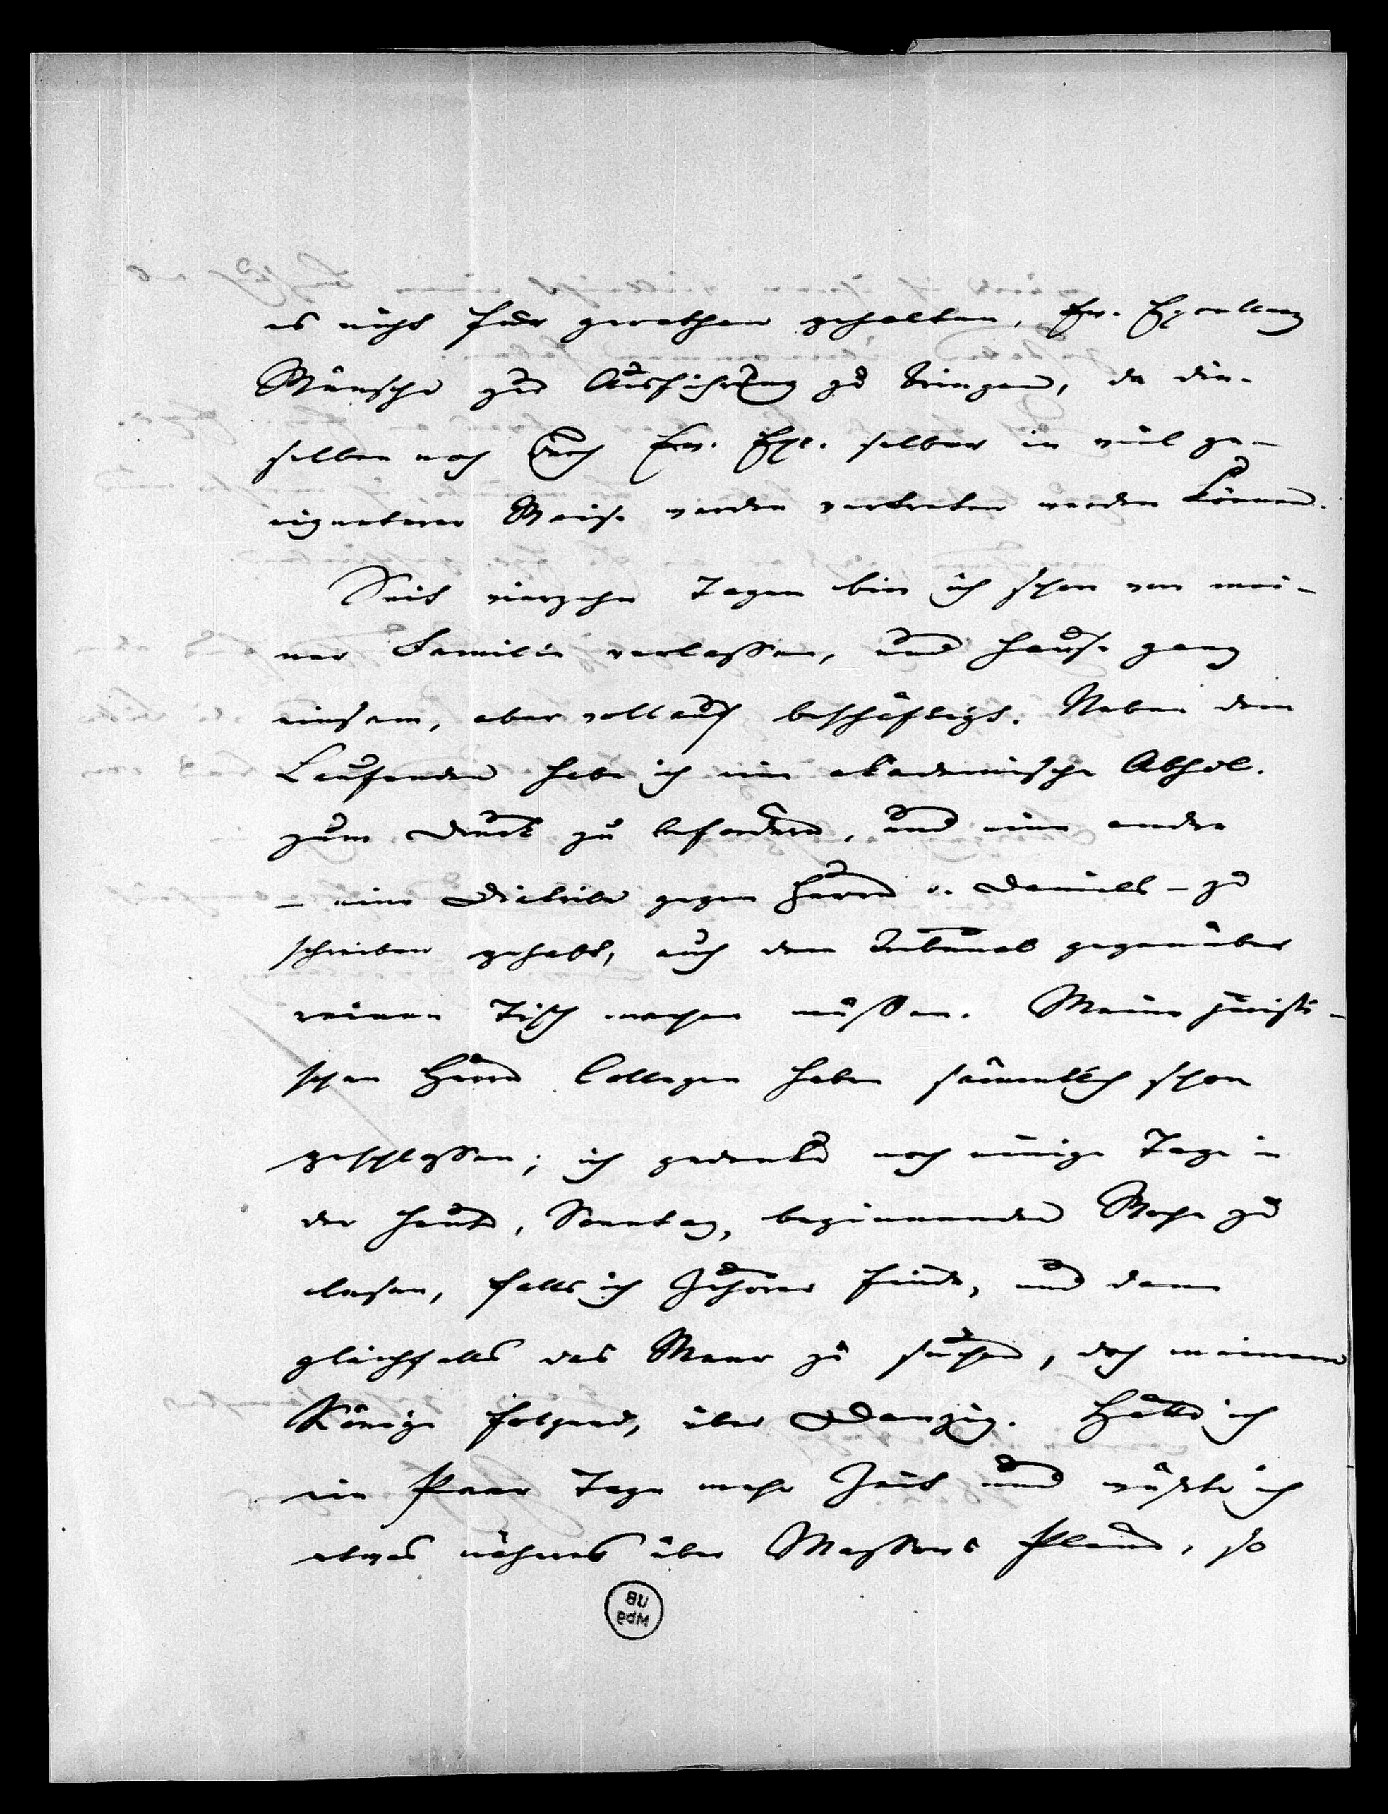 es nicht für gerathen gehalten, Ew. Excellenz
Wünsche zur Ausführung zu bringen, da die-
selben noch durch Ew. Exc. selber in viel ge-
eigneterer Weise werden vertreten werden können.
Seit vierzehn Tagen bin ich schon von mei-
ner Familie verlassen, und hause ganz
einsam, aber vollauf beschäftigt. Neben dem
Laufenden habe ich eine akademische Abhdl.
zum Druck zu befördern, und eine andre
– eine Diatribe gegen Herrn v. Daniels – zu
schreiben gehabt, auch dem Tribunal gegenüber
reinen Tisch machen müssen. Meine juristi-
schen Herrn Collegen haben sämmtlich schon
geschlossen; ich gedenke noch einige Tage in
der heute, Sonntag, beginnenden Woche zu
lesen, falls ich Zuhörer finde, und dann
gleichfalls das Meer zu suchen, doch meinem
Könige folgend, über Danzig. Hätte ich
ein Paar Tage mehr Zeit und wüßte ich
etwas näheres über Plane, so
UB
MBG